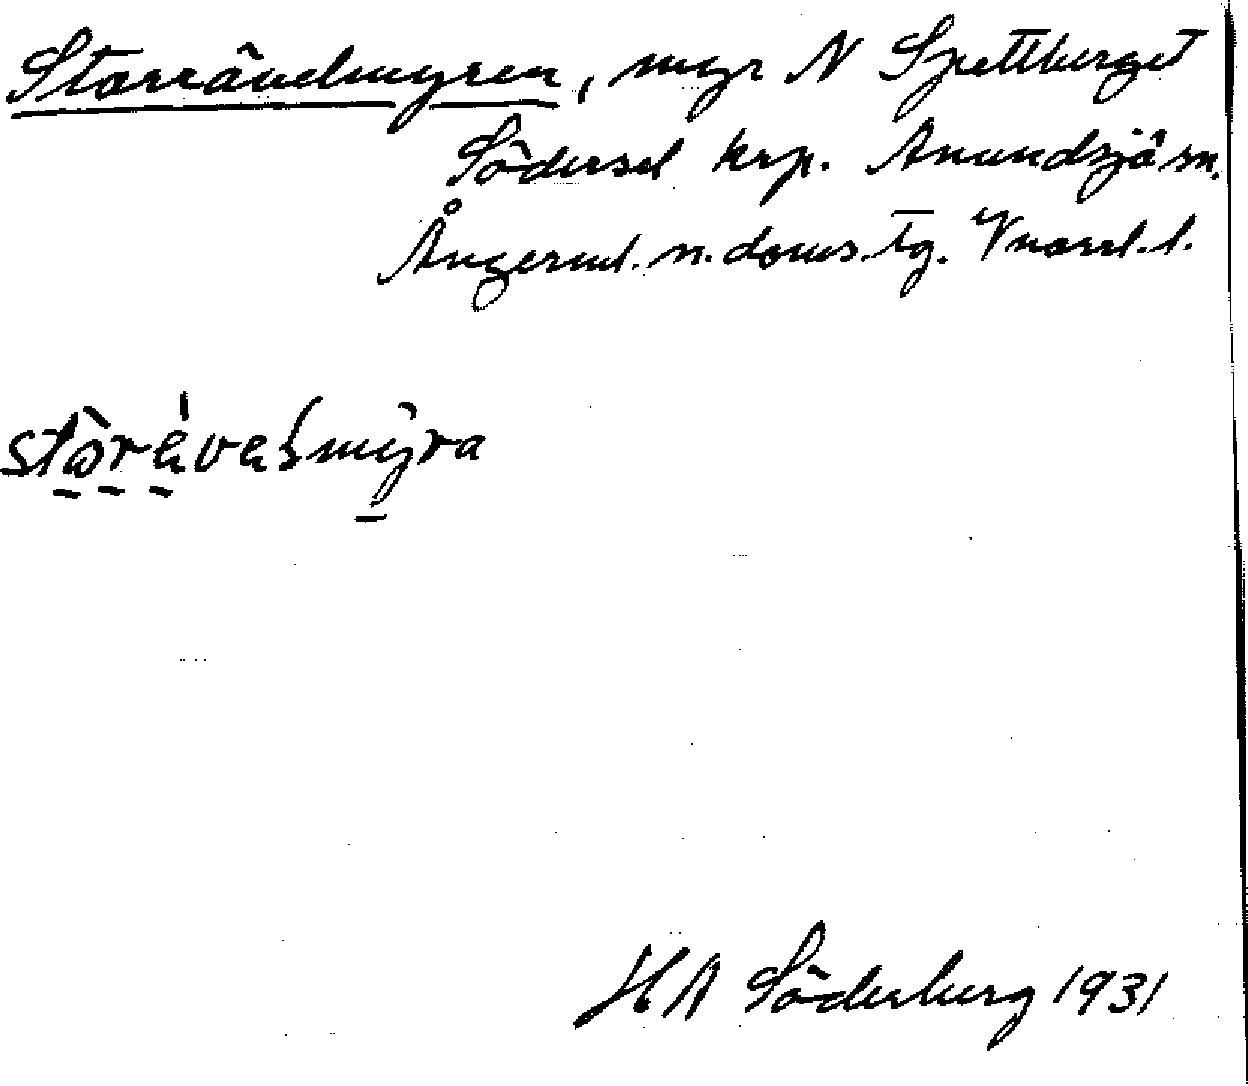 Storrävelmyren, myr N Spettberget
Södersel krp. Anundsjö sn.
Ångerml. n. doms. tg. Vnorrl. l.
HA Söderberg 1931